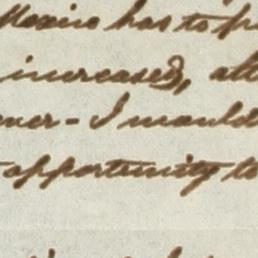 Mexico has to p
increased, alt
ever - I would
opportunity to